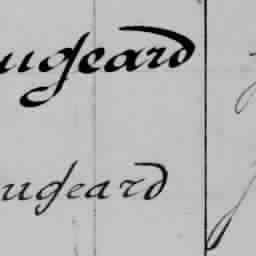 ugeard
ugeard